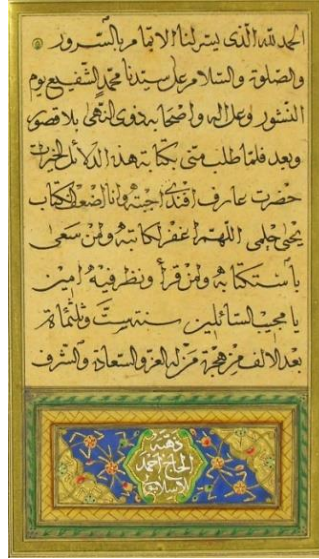 الحمد لله الذى يسر لنا الاتمام بالسرور
والصلوة والسلام على سيدنا محمد الشفيع يوم
النشور وعلى اله واصحابه ذوى النهى بلا قصور
وبعد فلما طلب منى بكتابة هذه الدلائل الخيرات
حضرت عارف افندى اجبته وانا اضعف الكتاب
يحيى حلمى اللهم اغفر لكاتبه ولمن سعى
باستكتابه ولمن قرأ ونظر فيه امين
يا مجيب السائلين سنه ست وثلثماة
بعد الالف من هجرة من له العز والسعادة والشرف
ذهبه
الحاج احمد
الاسلامبولى